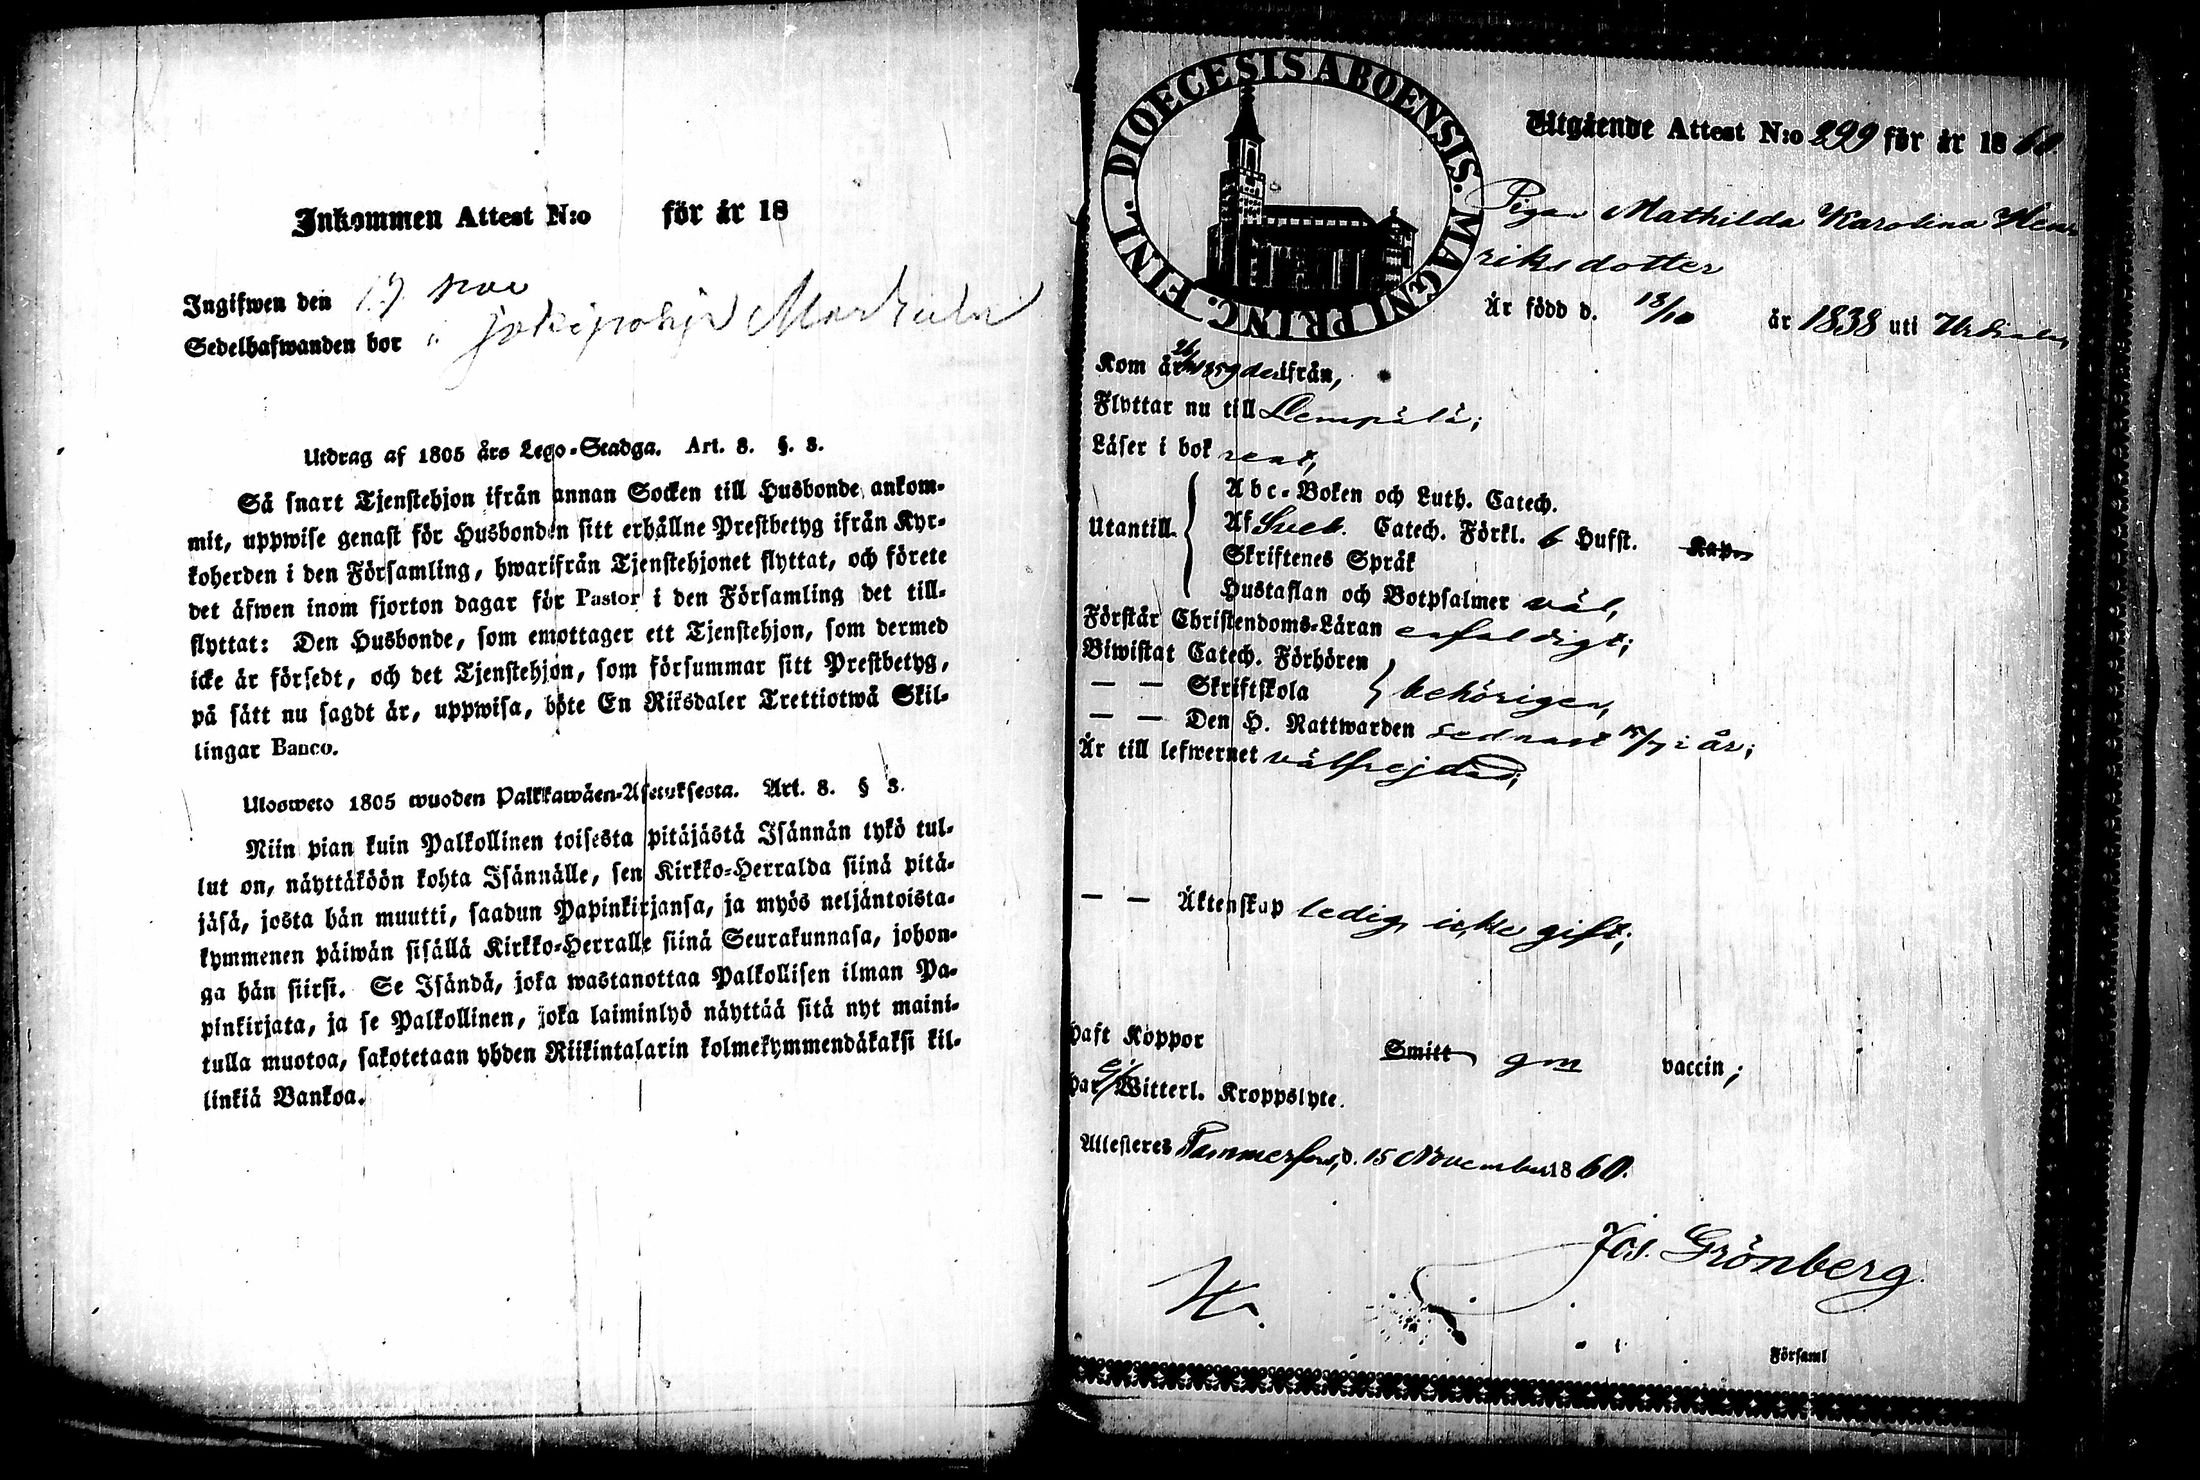 Inkommen Attest N:o för år 18
Ingifwen den 17 nov
Sedelhafwanden bor i jokipohja Markula
Utdrag af 1805 års Lego-Stadga. Art. 8. §. 3.
Så snart Tjenstehjon ifrån annan Socken till Husbonde ankom-
mit, uppwise genast för Husbonden sitt erhållne Prestbetyg ifrån Kyr-
koherden i den Församling, hwarifrån Tjenstehjonet flyttat, och förete
det äfwen inom fjorton dagar för Pastor i den Församling det till-
flyttat: Den Husbonde, som emottager ett Tjenstehjon, som dermed
icke är försedt, och det Tjenstehjon, som försummar sitt Prestbetyg,
på sätt nu sagdt är, uppwisa, böte En Riksdaler Trettiotwå Skil-
lingar Banco.
Ulosweto 1805 wuoden Palkkawäen-Asetuksesta. Art. 8. § 3.
Niin pian kuin Palkollinen toisesta pitäjästä Isännän tykö tul-
lut on, näyttäköön kohta Isännälle, sen Kirkko-Herralda siinä pitä-
jäsä, josta hän muutti, saadun Papinkirjansa, ja myös neljäntoista-
kymmenen päiwän sisällä Kirkko-Herralle siinä Seurakunnasa, johon-
ga hän siirsi. Se Isändä, joka wastanottaa Palkollisen ilman Pa-
pinkirjata, ja se Palkollinen, joka laiminlyö näyttää sitä nyt maini-
tulla muotoa, sakotetaan yhden Riikintalarin kolmekymmendäkaksi kil-
linkiä Bankoa.
DIOECESIS ABOENSIS. MAGNI PRINC. FINL.
Utgående Attest N:o 299 för år 1860
Pigan Mathilda Karolina Hen
riksdotter
Är född d. 18/10 år 1838 uti Urdiala,
Kom år 1859 derifrån,
Flyttar nu till Lempälä;
Läser i bok rent,
Abc-Boken och Luth. Catech.
Utantill Af Sveb. Catech. Förkl. 6 Hufst. Kap.
Skriftenes Språk
Hustaflan och Botpsalmer väl,
Förstår Christendoms-Läran enfaldigt;
Biwistat Catech. Förhören
— — Skriftskola behörigen,
— — Den H. Nattwarden sednast 15/7 i år;
Är till lefwernet välfrejdad;
— — Äktenskap ledig, icke gift;
Haft Koppor Smitt gm vaccin;
Har ej Witterl. Kroppslyte.
Attesteres Tammerfors, d. 15 November 1860.
Jos. Grönberg.
Församl